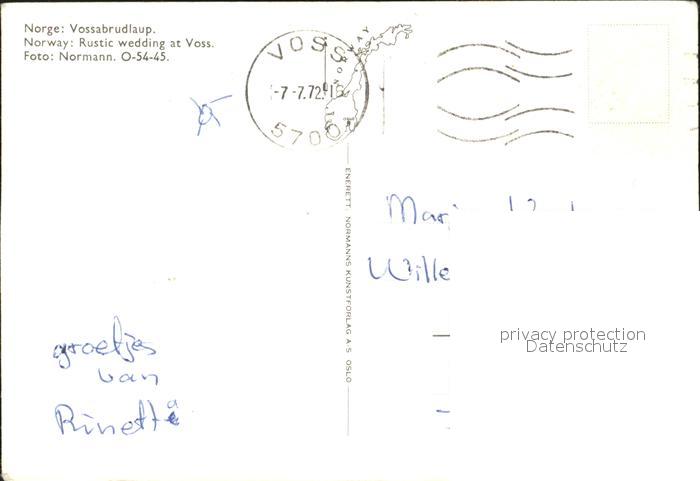 Norge: Vossabrudlaup.
Norway: Rustic wedding at Voss.
Foto: Normann. O-54-45.
VOSS
-7-7.72.
5700
ENERETT: NORMANNS KUNSTFORLAG A/S OSLO
privacy protection
Datenschutz
groetjes
van